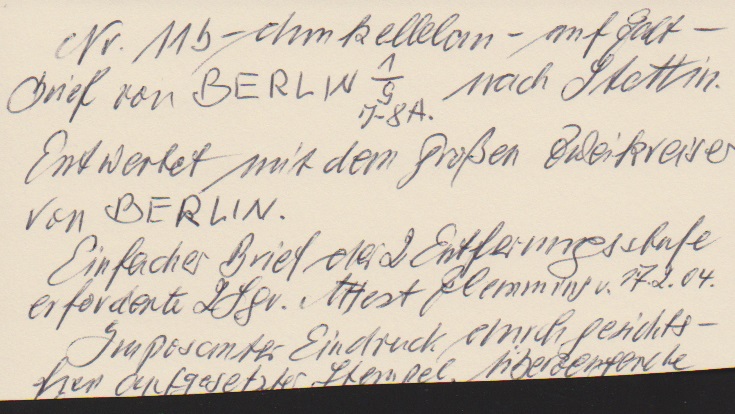 Nr. 11b - dunkelblau - auf Falt-
brief von BERLIN 1/9 7-8A. nach Stettin.
Entwertet mit dem großen Zweikreiser
von BERLIN.
Einfacher Brief der 2 Entfernungsstufe
erforderte 2 Sgr. Attest Flemming v. 17.2.04.
Imposanter Eindruck durch gesichts-
frei aufgesetzter Stempel.